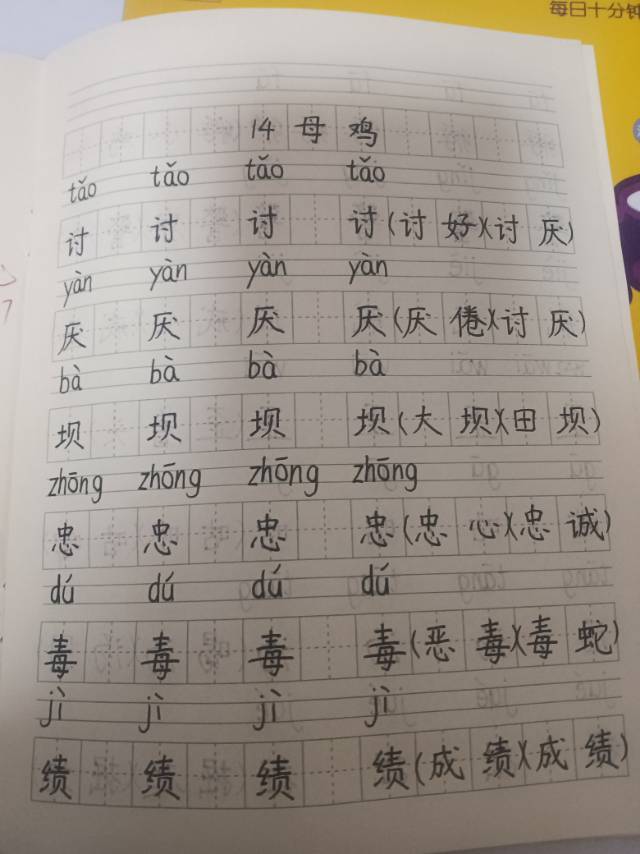 每日十分钟
14 母 鸡
tǎo tǎo tǎo tǎo
讨 讨 讨 讨(讨好)(讨厌)
yàn yàn yàn yàn
厌 厌 厌 厌(厌倦)(讨厌)
bà bà bà bà
坝 坝 坝 坝(大坝)(田坝)
zhōng zhōng zhōng zhōng
忠 忠 忠 忠(忠心)(忠诚)
dú dú dú dú
毒 毒 毒 毒(恶毒)(毒蛇)
jì jì jì jì
绩 绩 绩 绩(成绩)(成绩)